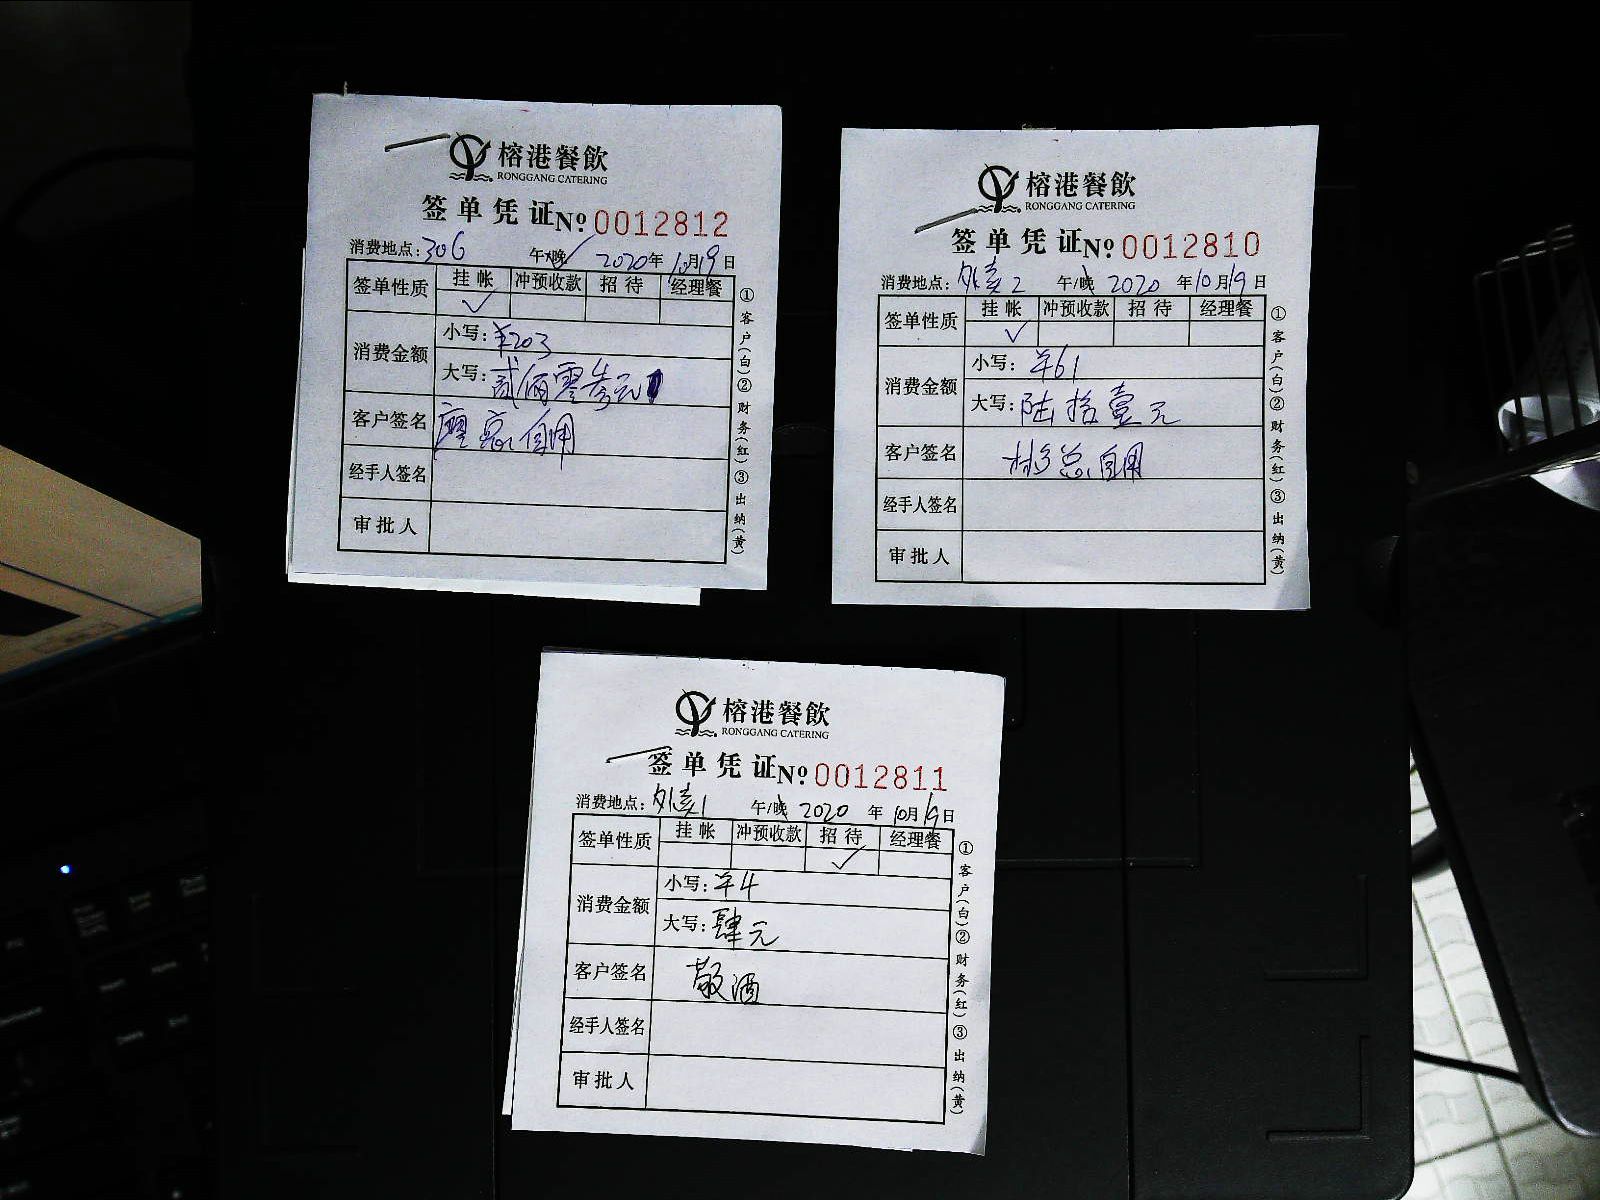 榕港餐飲
RONGGANG CATERING
签单凭证 №0012812
消费地点：306 午/晚 2020年10月19日
签单性质 挂帐 冲预收款 招待 经理餐
✓
消费金额 小写：¥203
大写：贰佰零叁元
客户签名 廖总自用
经手人签名
审批人
①客户(白)②财务(红)③出纳(黄)
榕港餐飲
RONGGANG CATERING
签单凭证 №0012810
消费地点：外卖2 午/晚 2020年10月19日
签单性质 挂帐 冲预收款 招待 经理餐
✓
消费金额 小写：¥61
大写：陆拾壹元
客户签名 总自用
经手人签名
审批人
①客户(白)②财务(红)③出纳(黄)
榕港餐飲
RONGGANG CATERING
签单凭证 №0012811
消费地点：外卖1 午/晚 2020年10月19日
签单性质 挂帐 冲预收款 招待 经理餐
✓
消费金额 小写：¥4
大写：肆元
客户签名 敬酒
经手人签名
审批人
①客户(白)②财务(红)③出纳(黄)